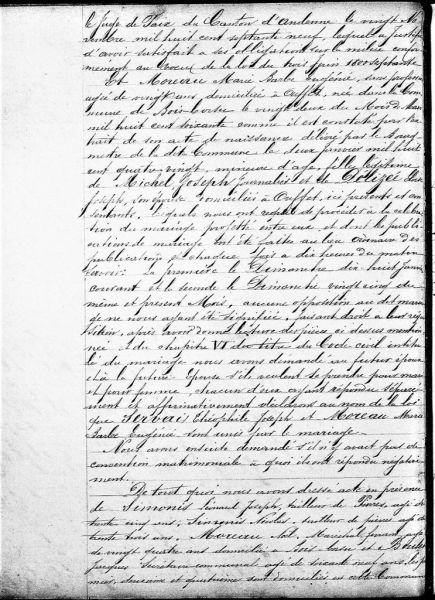 le Juge de Paix du Canton d'andenne le vingt No
vembre mil huit cent septante neuf, lequel a justifié
d'avoir satisfait a ses obligations sur la milice confor
mement au voeu de la loi du trois juin 1800 septante
Et Moreau Marie Barbe Eugénie, sans profession
agée de vingt ans domiciliée à Ouffet, née dans la Com
mune de Bois-borsu le vingt deux du Mois de Mars
mil huit cent soixante comme il est constaté par l'ex
trait de son acte de naissance délivré par le Bourg
mestre de la dite Commune le deux janvier mil huit
cent quatre vingt, mineure d'age, fille légitime
de Michel Joseph journalier et de
Joseph, son épouse domiciliés à Ouffet, ici présents et con
sentants. Lesquels nous ont requis de procéder à la célébra
tion du mariage projetté entre eux et dont les publi
cations de mariage ont été faites au lieu ordinaire des
publications, et chaque fois à dix heures du matin
savoir: La première le Dimanche dix huit Janvier
courant et la seconde le Dimanche vingt cinq du
même et présent Mois, aucune opposition au dit maria
ge ne nous ayant été signifiée, faisant droit a leur réqui
sition, après avoir donné lecture des pièces ci dessus mention
nées et du chapitre VI du titre du Code civil intitu
lé du mariage nous avons demandé au futur époux
et à la future Epouse s'ils veulent se prendre pour mari
et pour femme, chacun d'eux ayant répondu séparé
ment et affirmativement déclarons au nom de la loi
que Servais Théophile Joseph et Moreau Marie
Barbe Eugénie sont unis par le mariage.
Nous avons ensuite demandé s'il n'y avait pas de
convention matrimoniale à quoi ils ont répondu négative
ment.
De tout quoi nous avons dressé acte en présence
de Simonis Lenard Joseph, tailleur de Pierres, agé de
trente cinq ans, Simonis Nicolas, tailleur de pierres agé de
trente trois ans, Moreau Noël, Maréchal ferrant, agé
de vingt quatre ans domicilié à Bois borsu et
Jacques Secrétaire communal agé de soixante neuf ans, les pre
mier, deuxième et quatrième sont domiciliés en cette Commune